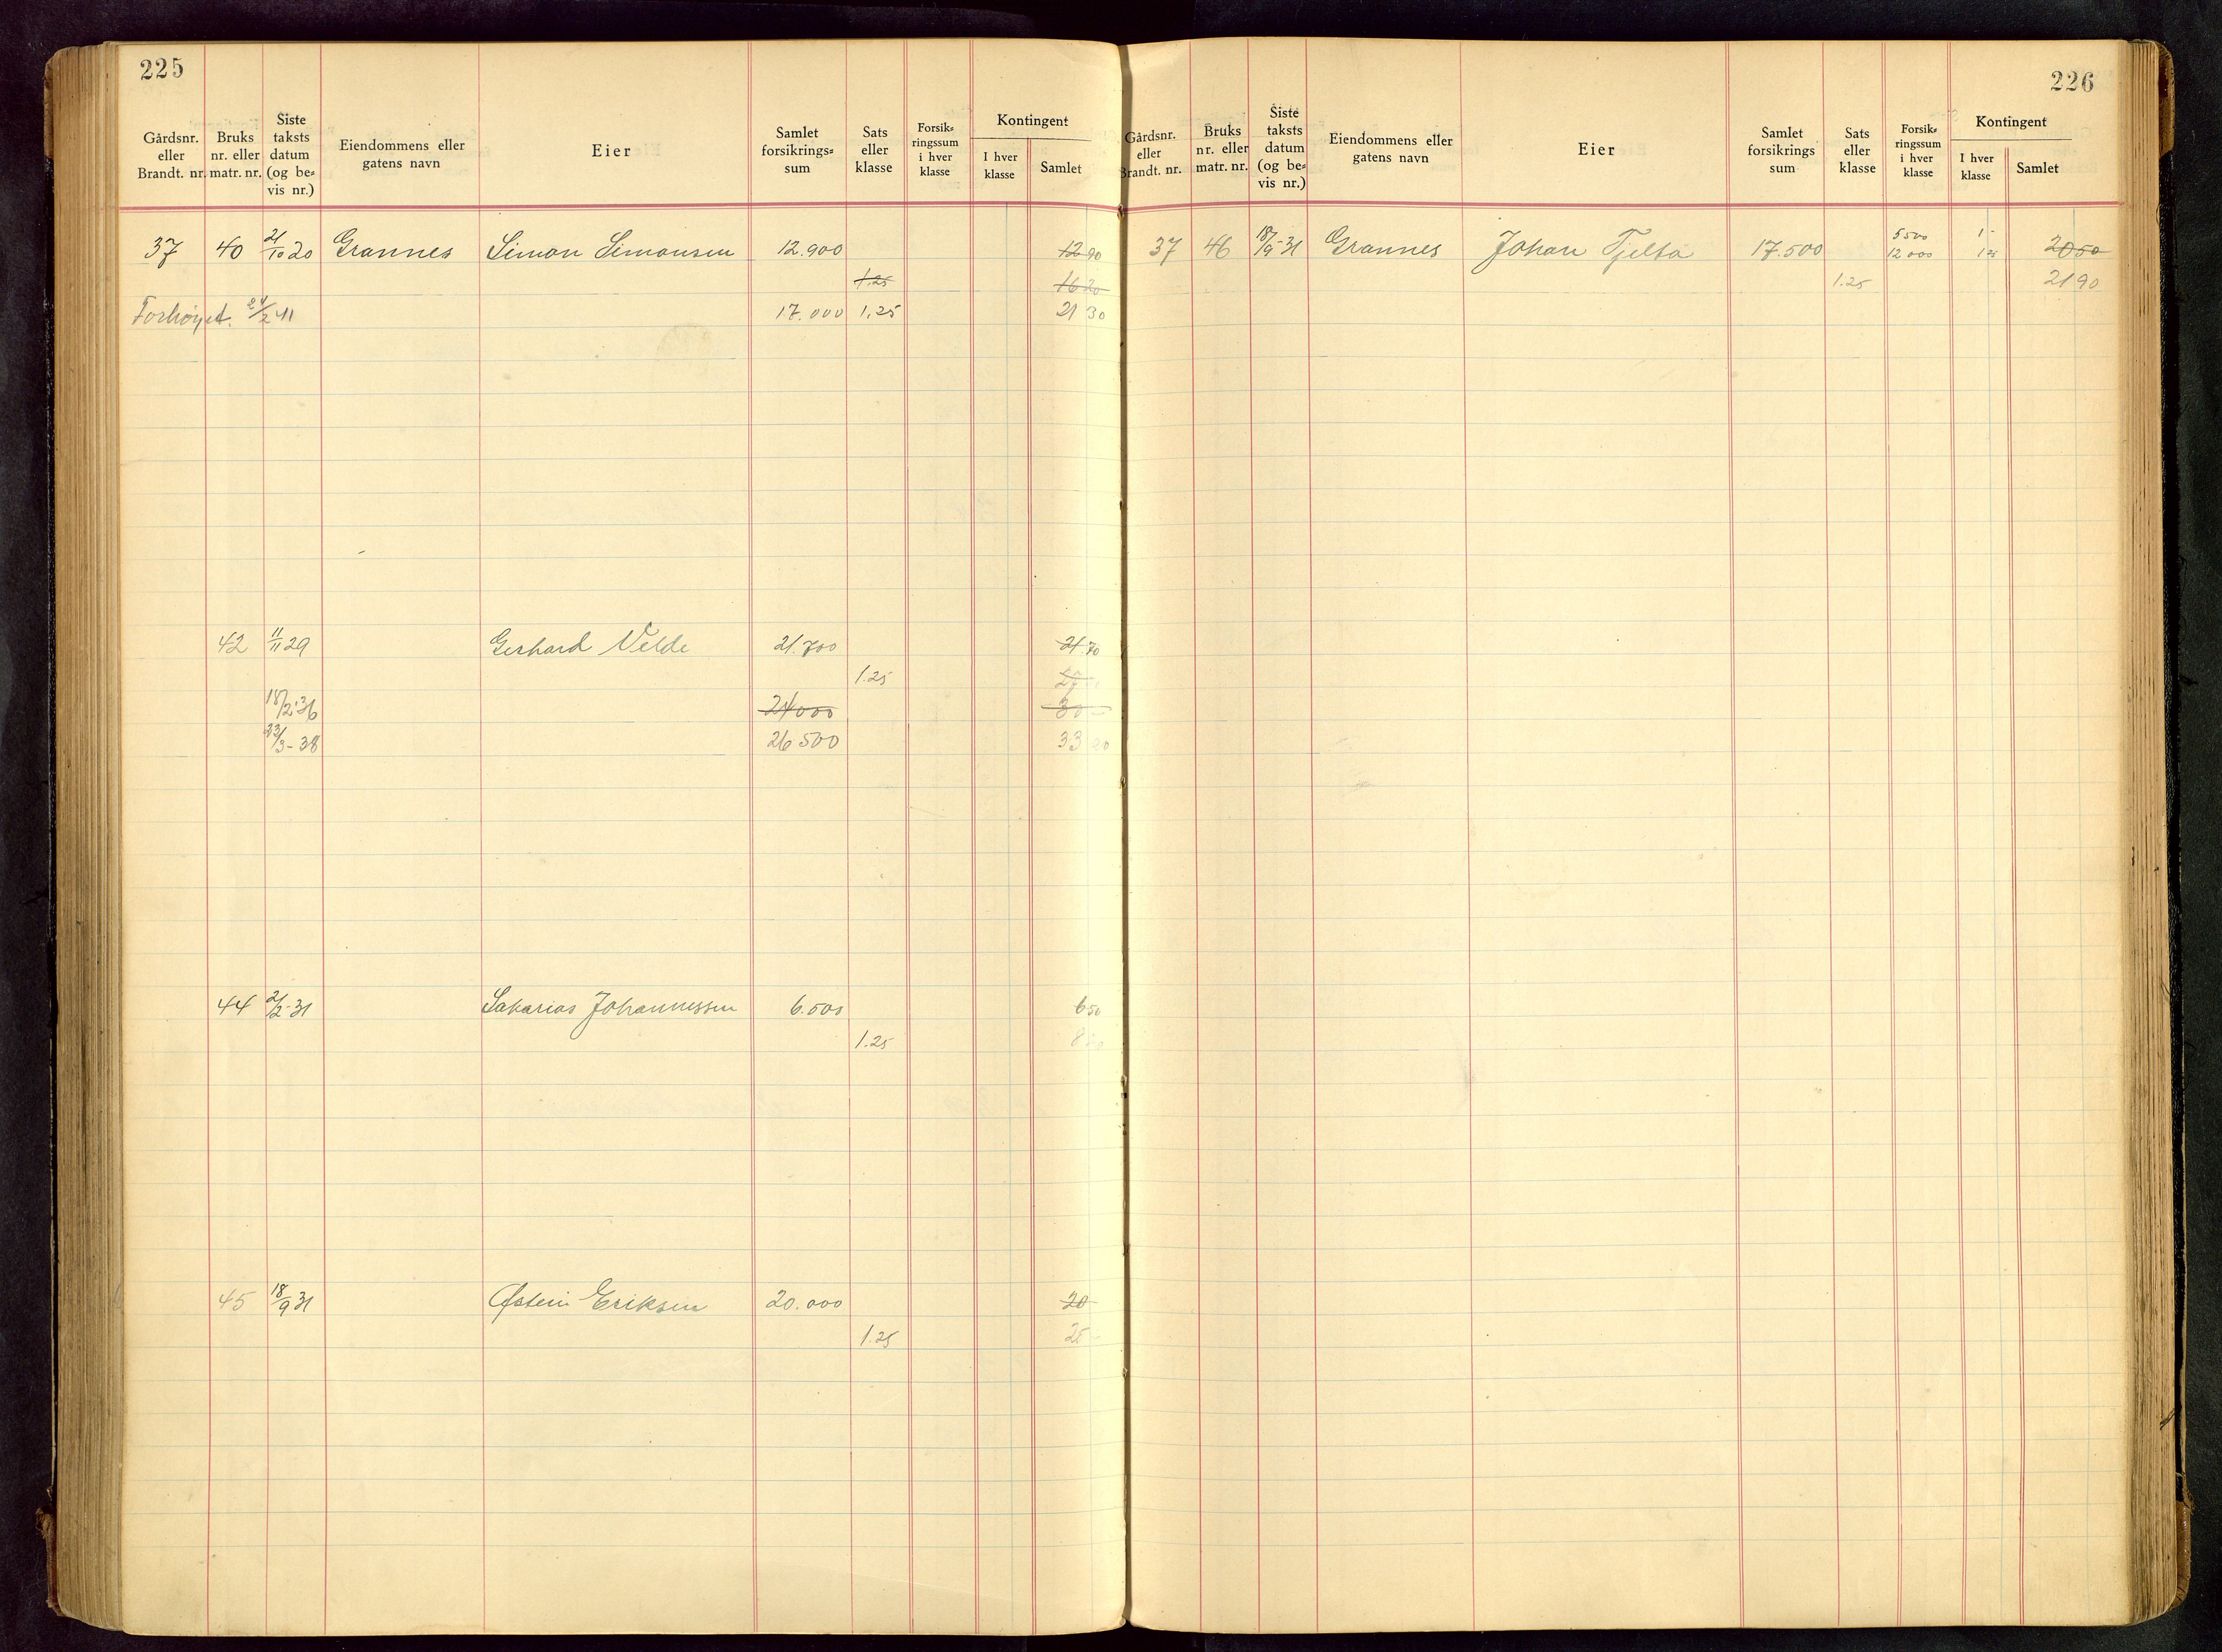 225
Gårdsnr. eller Brandt. nr. Bruks nr. eller matr. nr. Siste taksts datum (og be= vis nr.) Eiendommens eller gatens navn Eier Samlet forsikrings= sum Sats eller klasse Forsik= ringssum i hver klasse Kontingent I hver klasse Samlet
37 40 21/10 20 Grannes Simon Simonsen 12.900 12 90
1.25 16 20
Forhøyet. 24/2 41 17.000 1,25 21 30
42 11/11 29 Gerhard Velde 21.700 21.70
1.25 27
18/2 '36 24000 30 -
23/3 - 38 26 500 33 20
44 2/2 - 31 Sakarias Johannessen 6.500 6 50
1.25 8
45 18/9 31 Østein Eriksen 20.000 20
1.25 25 -
226
Gårdsnr. eller Brandt. nr. Bruks nr. eller matr. nr. Siste taksts datum (og be= vis nr.) Eiendommens eller gatens navn Eier Samlet forsikrings sum Sats eller klasse Forsik= ringssum i hver klasse Kontingent I hver klasse Samlet
37 46 18/9 - 31 Grannes Johan Tjelta 17.500 5 500 1 - 20 50
12 000 1 25
1.25 21 90